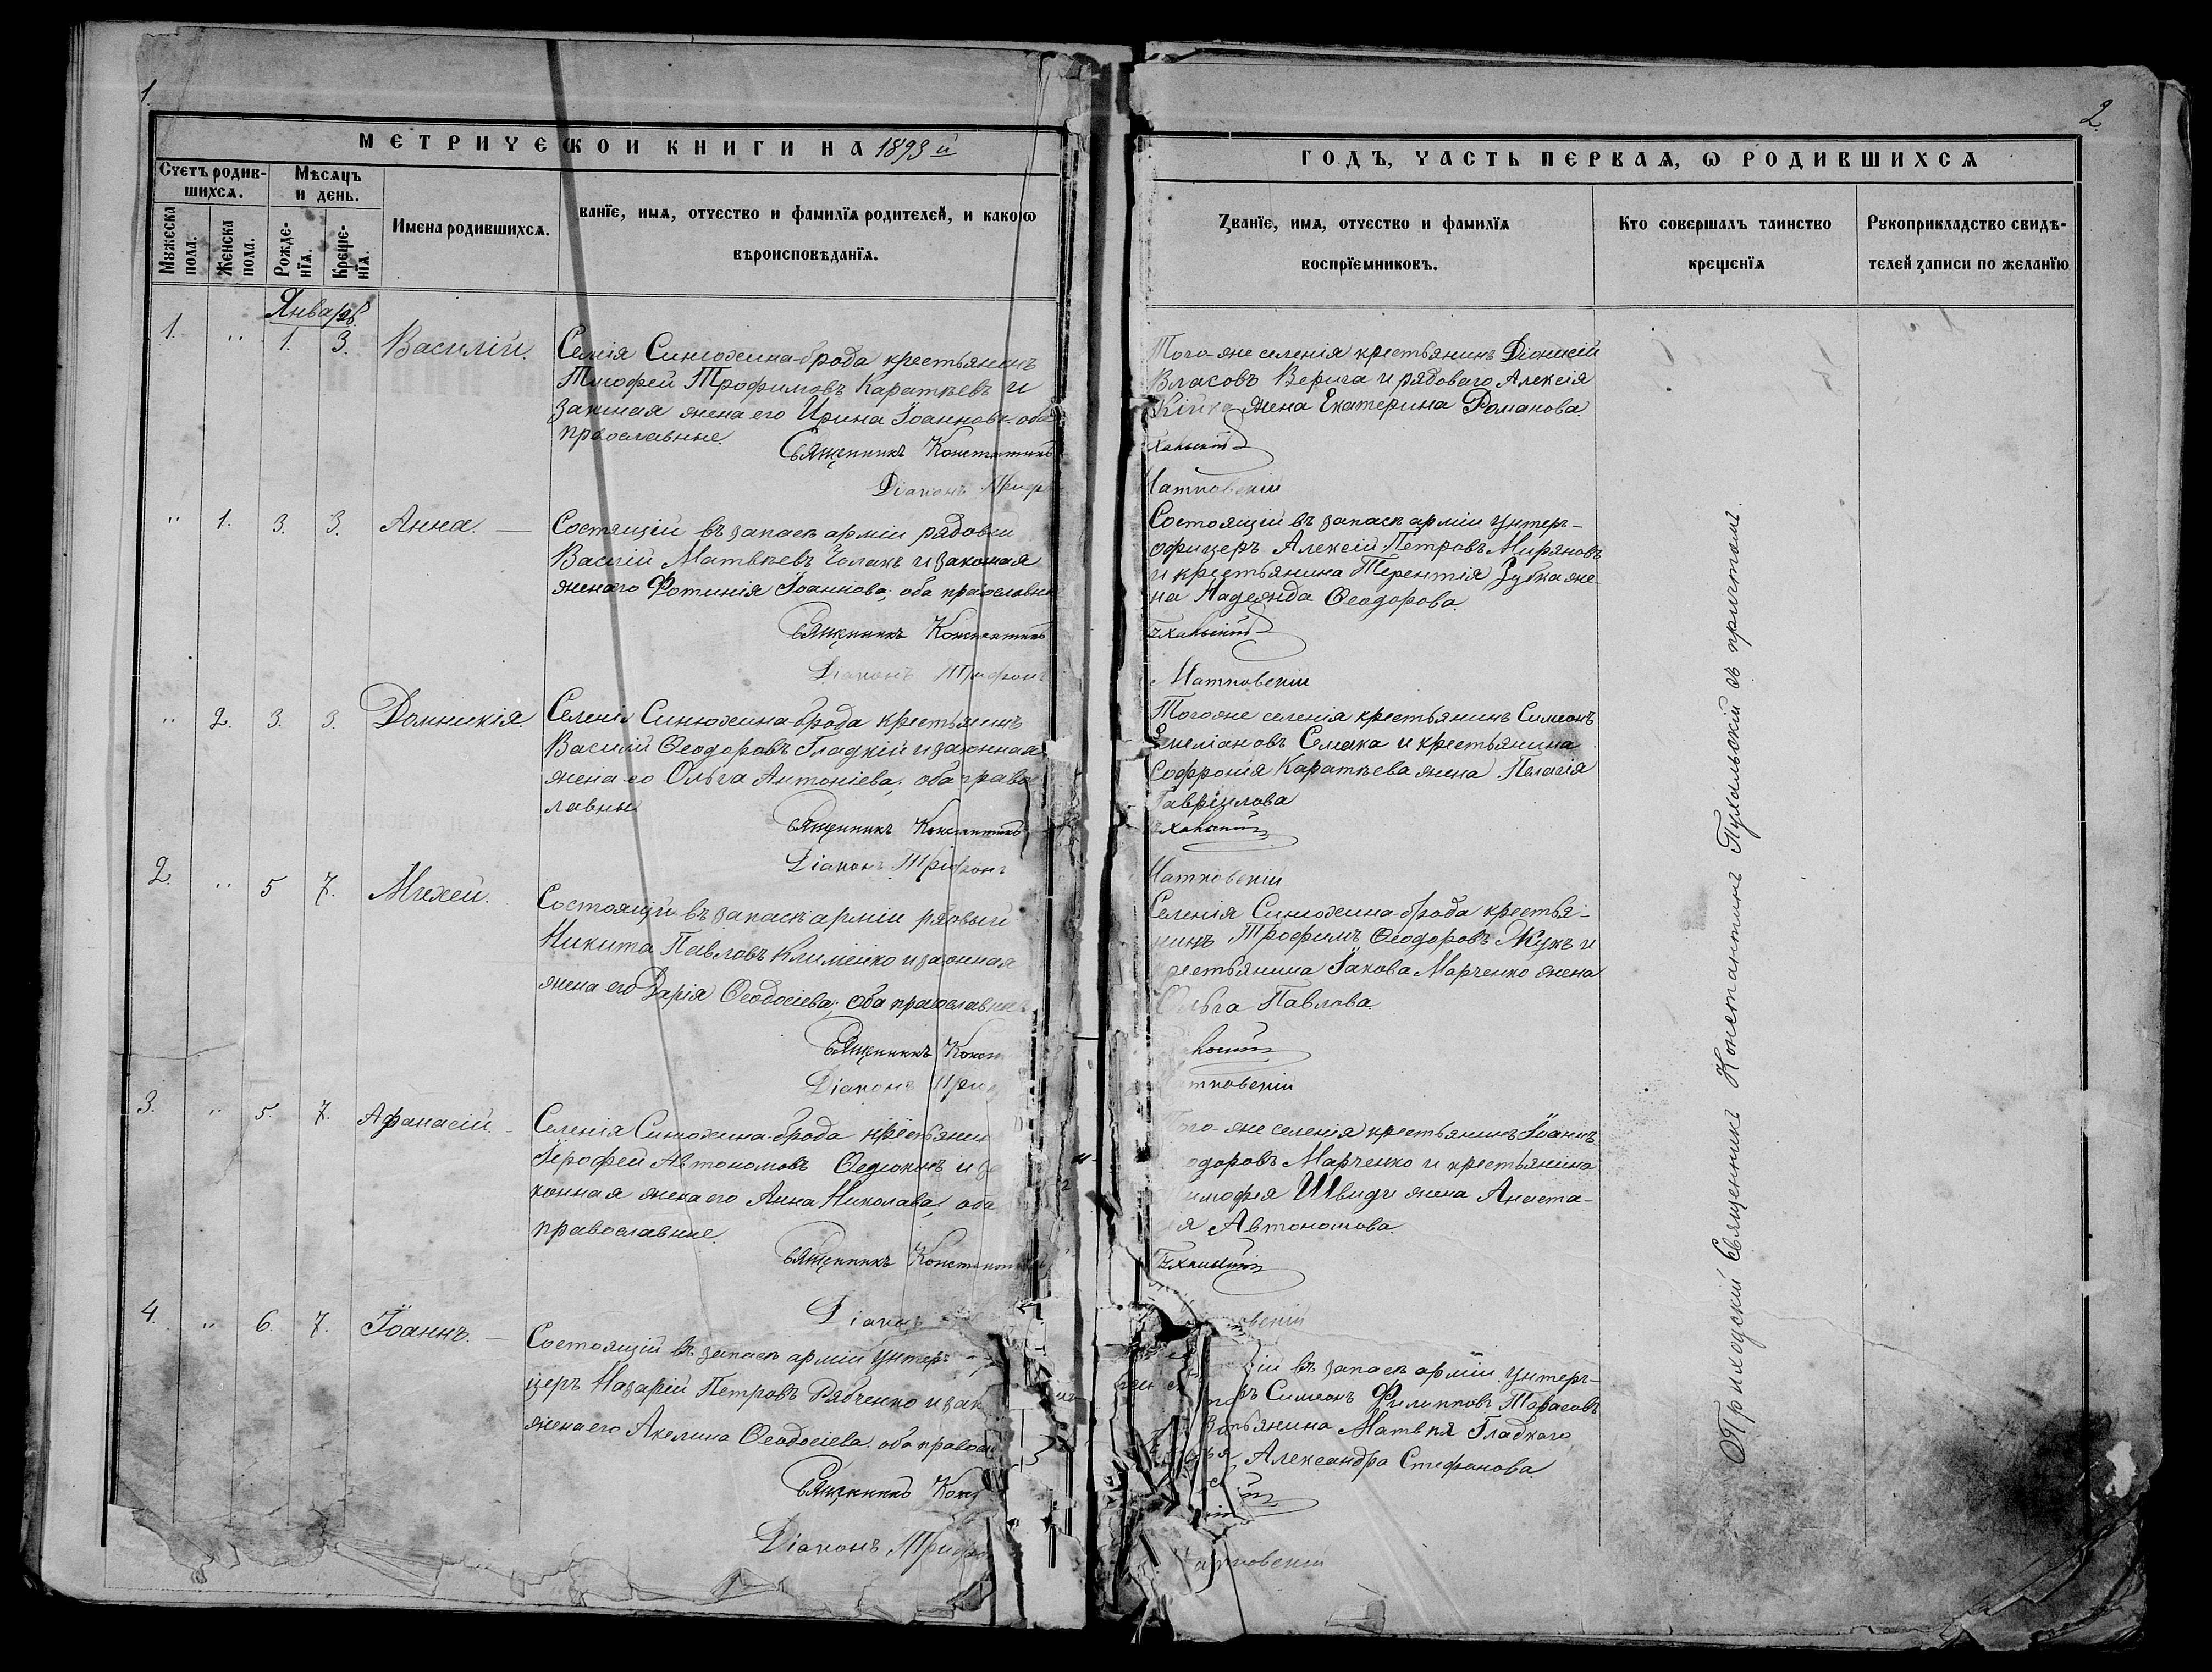 1.
МЕТРИЧЕСКОИ КНИГИ НА 1893 й
Счетъ родив-
шихся.
Мѣсяцъ
и день.
Мужеска
пола.
Женска
пола.
Рожде-
нія.
Креще-
нія.
Имена родившихся.
Званіе, имя, отчество и фамилія родителей, и какого
вѣроисповѣданія.
Январь
1. " 1. 3. Василій.
Селенія Синюхина-брода крестьянинъ
Тимофей Трофимовъ Каратѣевъ и
законная жена его Ирина Іоаннова оба
православные.
Священникъ Константинъ
Діаконъ
" 1. 3. 3. Анна. —
Состящій въ запасѣ арміи рядовой
Василій Матвѣевъ и законая
жена его Фотинія Іоаннова; оба православны
Священникъ Константинъ
Діаконъ Трифонъ
" 2. 3. 3. Домникія.
Селенія Синюхина-брода крестьянинъ
Василій Ѳеодоровъ Гладкій и законная
жена его Ольга Антоніева; оба право
лавны
Священникъ Константинъ
Діаконъ Трифонъ
2. " 5 7. Михей.
Состоящій въ запасѣ арміи рядовый
Никита Павловъ Клименко и законная
жена его Дарія Ѳеодосіева; оба православны
Священникъ Конст
Діаконъ
3. " 5. 7. Аѳанасій. -
Селенія Синюхина-брода крестьянин
Іерофей Автономовъ и за
конная жена его Анна Николаева; оба
православные.
Священникъ Константинъ
Діаконъ
4. " 6. 7. Іоаннъ. —
Состоящій въ запасѣ арміи унтеръ-
церъ Назарій Петровъ Рябченко и зак
жена его Акелина Ѳеодосіева оба правосл
Священникъ Конс
Діаконъ Трифон
2.
ГОДЪ, ЧАСТЬ ПЕРВАЯ, Ѡ РОДИВШИХСЯ
Званіе, имя, отчество и фамилія
воспріемниковъ.
Кто совершалъ таинство
крещенія
Рукоприкладство свидѣ-
телей записи по желанію
Того-же селенія крестьянинъ Діонисій
Власовъ Верига и рядоваго Алексія
Кійка жена Екатерина Романова.
хальскій
Матковскій
Состоящій въ запасѣ арміи унтеръ-
офицеръ Алексій Петровъ Миряновъ
и крестьянина Терентія Зубка же
на Надежда Ѳеодорова.
хальскій
Матковскій
Того же селенія крестьянинъ Симеонъ
Емеліановъ Семака и крестьянина
Софронія Каратѣева жена Пелагія
Гавріилова
хальскій
Матковскій
Селенія Синюхина-брода крестья-
нинъ Трофимъ Ѳеодоровъ Жукъ и
крестьянина Іакова Марченко жена
Ольга Павлова.
альскій
Матковскій
Того-же селенія крестьянинъ Іоаннъ
одоровъ Марченко и крестьянина
имофея Швидч жена Анаста-
я Автономова.
хальскій
овскій
ій въ запасѣ арміи унтеръ-
ръ Симеонъ Филипповъ Тарасовъ
стьянина Матвѣя Гладкаго
Александра Стефанова.
ій
атковскій
Приходскій Священникъ Константинъ Пухальскій съ причтомъ.